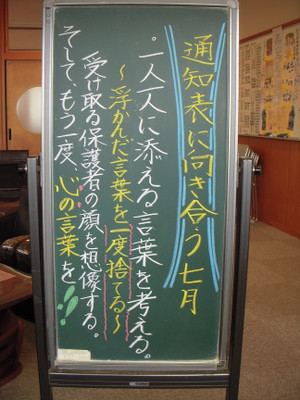 通知表に向き合う七月
。一人一人に添える言葉を考える。
～浮かんだ言葉を一度捨てる～
受け取る保護者の顔を想像する。
そして、もう一度、心の言葉を!!